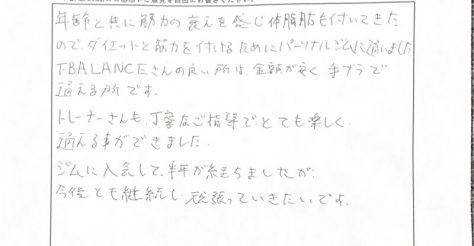 年齢と共に筋力の衰えを感じ体脂肪も付いてきた
ので、ダイエットと筋力を付けるためにパーソナルジムに通いました
T-BALANCEさんの良い所は、金額が安く 手ブラで
通える所です。
トレーナーさんも、丁寧なご指導でとても楽しく
通える事ができました。
ジムに入会して、半年が経ちましたが、
今後とも継続し 頑張っていきたいです。